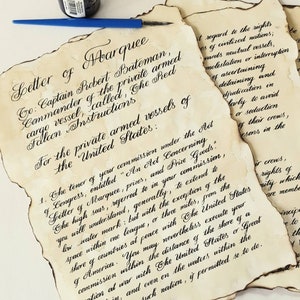 Letter of Marquee
To: Captain Robert Bateman,
Commander of the private armed
cargo vessel, called, The Red
Falcon - Instructions
For the private armed vessels of
the United States:
1. The tenor of your commission under the Act
Congress, entitled "An Act Concerning
Letter of Marque, Prizes, and Prize Goods",
the high seas, referred to in your commission,
you will understand, generally, to extend to
low water mark; but with the exception of the
space within one league, or three miles, from the
shore of countries at peace with The United States
of America. You may nonetheless execute your
commission within the distance of the shore of a
nation at war with The United States or Great
and even on the waters within the
such nation, if permitted so to do.
regard to the rights
of civilized nations;
towards neutral vessels,
molestation or interruption
ascertaining
detaining and
adjudication in
to avoid
or seduction
their crews,
their
in the
and crews